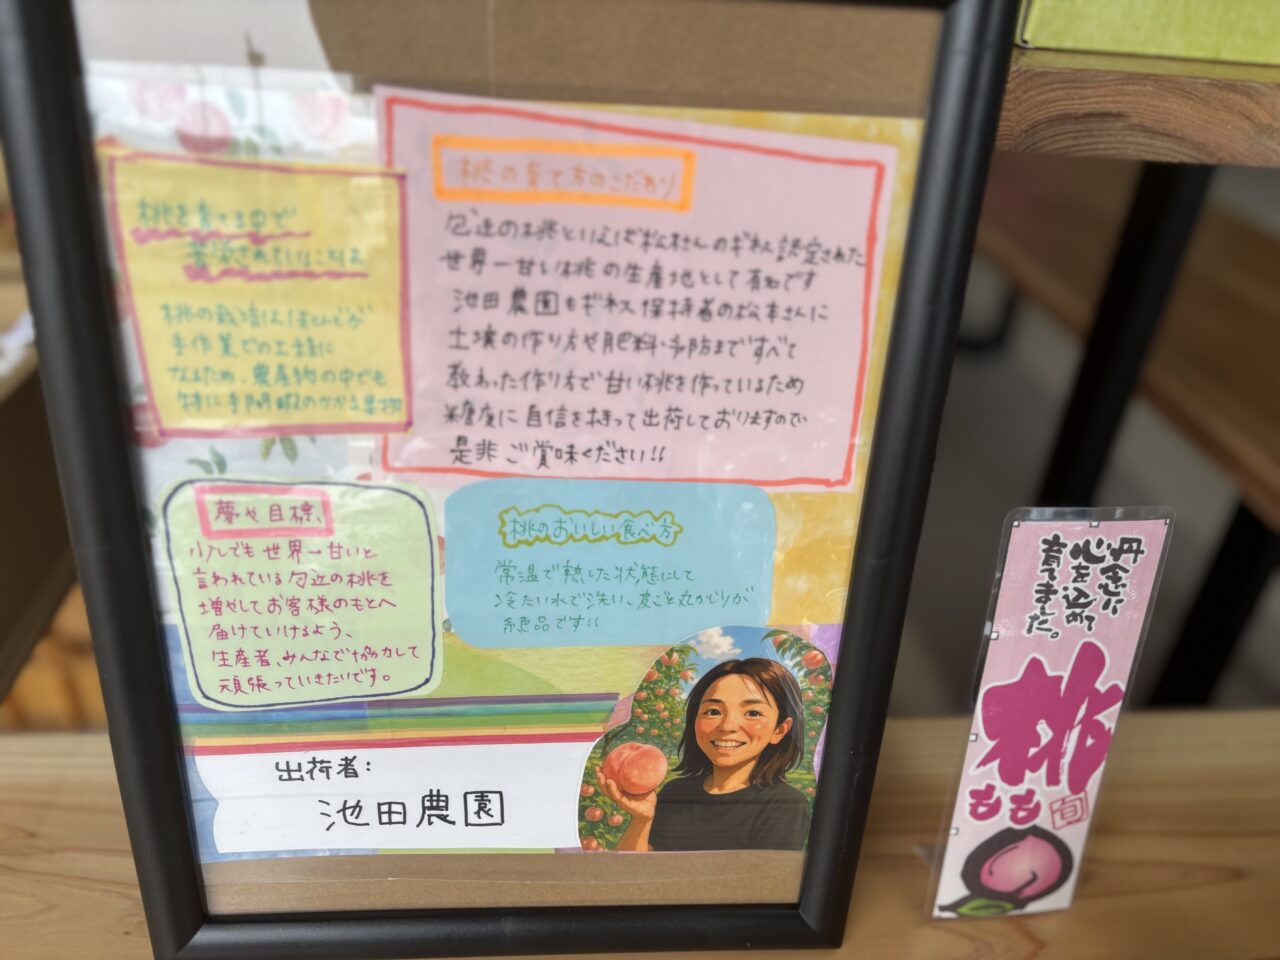 桃を育てる中で
苦労されていることは
桃の栽培はほとんどが
手作業での工程に
なるため、農産物の中でも
特に手間暇のかかる果物
桃の育て方のこだわり
包近の桃といえば松本さんのギネス認定された
世界一甘い桃の生産地として有名です
池田農園もギネス保持者の松本さんに
土壌の作り方や肥料・予防まですべて
教わった作り方で甘い桃を作っているため
糖度に自信を持って出荷しておりますので
是非ご賞味ください!!
夢や目標、
少しでも世界一甘いと
言われている包近の桃を
増やしてお客様のもとへ
届けていけるよう、
生産者、みんなで協力して
頑張っていきたいです。
桃のおいしい食べ方
常温で熟した状態にして
冷たい水で洗い、皮ごと丸かじりが
絶品です!!
出荷者:
池田農園
丹念に
心を込めて
育てました。
桃
もも
旬